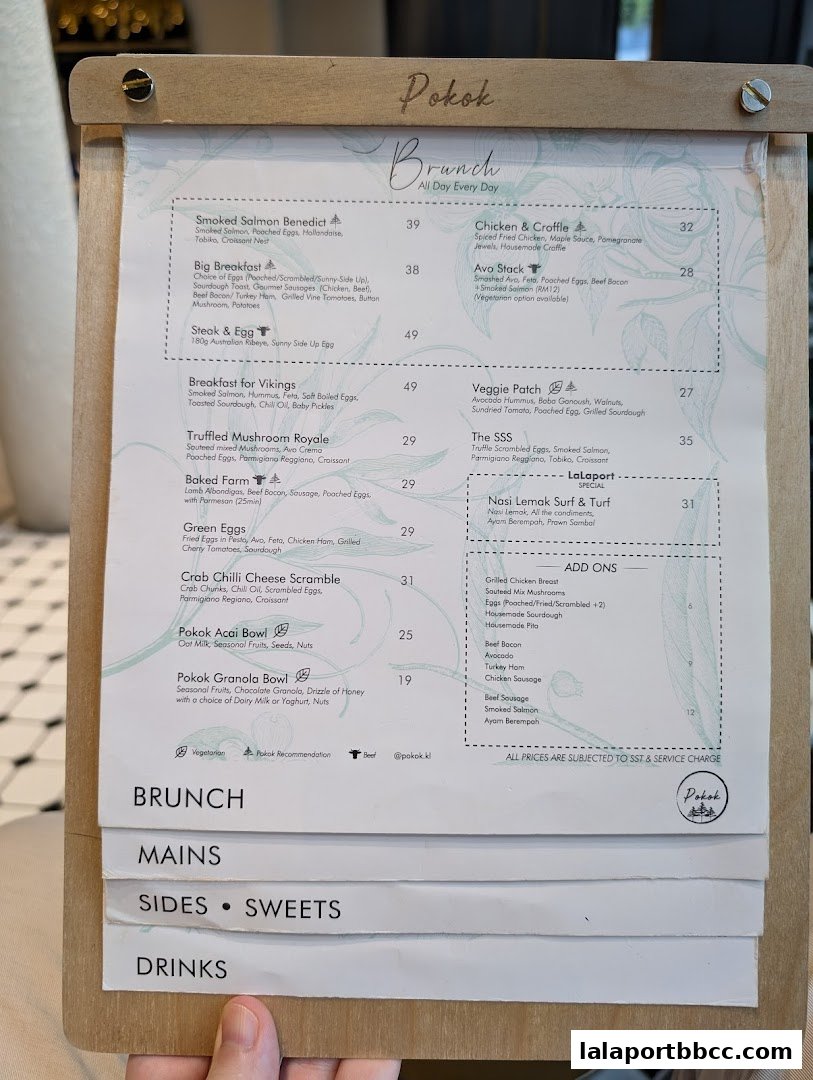 Pokok
Brunch
All Day Every Day
Smoked Salmon Benedict 39
Smoked Salmon, Poached Eggs, Hollandaise,
Tobiko, Croissant Nest
Big Breakfast 38
Choice of Eggs (Poached/Scrambled/Sunny-Side Up),
Sourdough Toast, Gourmet Sausages (Chicken, Beef),
Beef Bacon/ Turkey Ham, Grilled Vine Tomatoes, Button
Mushroom, Potatoes
Steak & Egg 49
180g Australian Ribeye, Sunny Side Up Egg
Chicken & Croffle 32
Spiced Fried Chicken, Maple Sauce, Pomegranate
Jewels, Housemade Croffle
Avo Stack 28
Smashed Avo, Feta, Poached Eggs, Beef Bacon
+Smoked Salmon (RM12)
(Vegetarian option available)
Breakfast for Vikings 49
Smoked Salmon, Hummus, Feta, Soft Boiled Eggs,
Toasted Sourdough, Chili Oil, Baby Pickles
Truffled Mushroom Royale 29
Sauteed mixed Mushrooms, Avo Crema
Poached Eggs, Parmigiano Reggiano, Croissant
Baked Farm 29
Lamb Albondigas, Beef Bacon, Sausage, Poached Eggs,
with Parmesan (25min)
Green Eggs 29
Fried Eggs in Pesto, Avo, Feta, Chicken Ham, Grilled
Cherry Tomatoes, Sourdough
Crab Chilli Cheese Scramble 31
Crab Chunks, Chili Oil, Scrambled Eggs,
Parmigiano Regiano, Croissant
Pokok Acai Bowl 25
Oat Milk, Seasonal Fruits, Seeds, Nuts
Pokok Granola Bowl 19
Seasonal Fruits, Chocolate Granola, Drizzle of Honey
with a choice of Dairy Milk or Yoghurt, Nuts
Veggie Patch 27
Avocado Hummus, Baba Ganoush, Walnuts,
Sundried Tomato, Poached Egg, Grilled Sourdough
The SSS 35
Truffle Scrambled Eggs, Smoked Salmon,
Parmigiano Reggiano, Tobiko, Croissant
LaLaport
SPECIAL
Nasi Lemak Surf & Turf 31
Nasi Lemak, All the condiments,
Ayam Berempah, Prawn Sambal
ADD ONS
Grilled Chicken Breast
Sauteed Mix Mushrooms
Eggs (Poached/Fried/Scrambled +2) 6
Housemade Sourdough
Housemade Pita
Beef Bacon
Avocado
Turkey Ham 9
Chicken Sausage
Beef Sausage
Smoked Salmon 12
Ayam Berempah
Vegetarian Pokok Recommendation Beef @pokok.kl
ALL PRICES ARE SUBJECTED TO SST & SERVICE CHARGE
BRUNCH
Pokok
MAINS
SIDES • SWEETS
DRINKS
lalaportbbcc.com